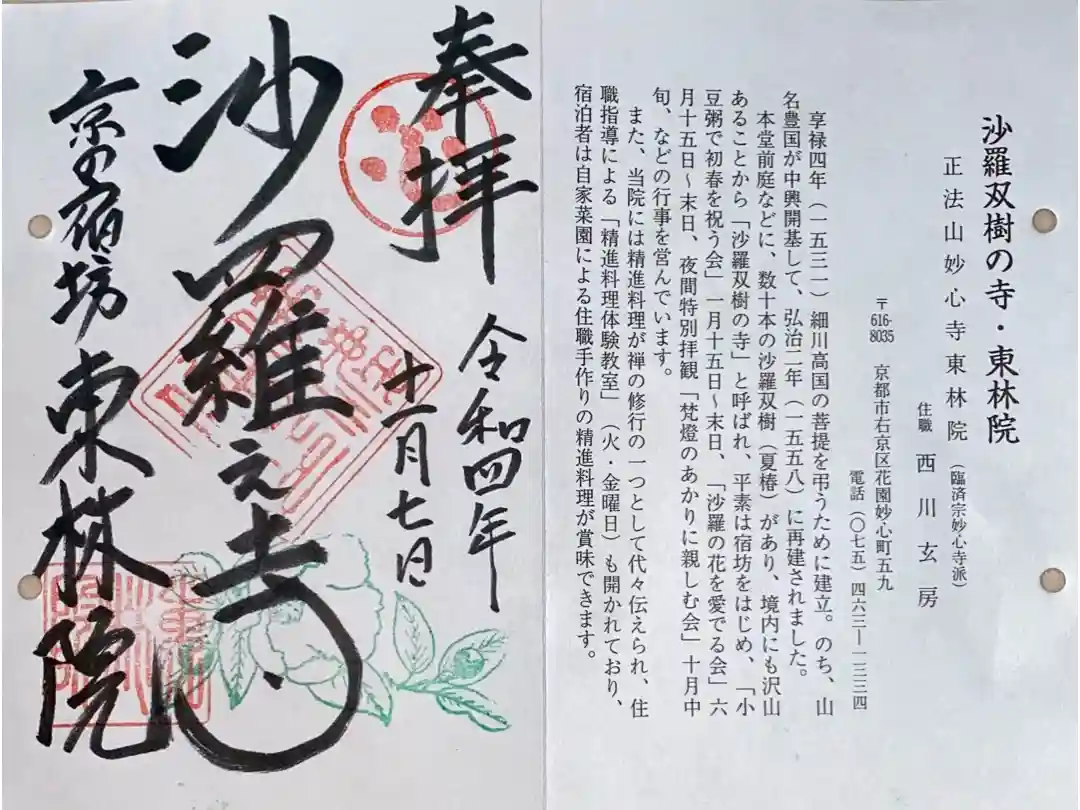 沙羅双樹の寺・東林院
正法山妙心寺東林院（臨済宗妙心寺派）
住職 西川玄房
〒616-8035 京都市右京区花園妙心町五九
電話（〇七五）四六三―一三三四
享禄四年（一五三一）細川高国の菩提を弔うために建立。のち、山
名豊国が中興開基して、弘治二年（一五五八）に再建されました。
本堂前庭などに、数十本の沙羅双樹（夏椿）があり、境内にも沢山
あることから「沙羅双樹の寺」と呼ばれ、平素は宿坊をはじめ、「小
豆粥で初春を祝う会」一月十五日～末日、「沙羅の花を愛でる会」六
月十五日～末日、夜間特別拝観「梵燈のあかりに親しむ会」十月中
旬、などの行事を営んでいます。
また、当院には精進料理が禅の修行の一つとして代々伝えられ、住
職指導による「精進料理体験教室」（火・金曜日）も開かれており、
宿泊者は自家菜園による住職手作りの精進料理が賞味できます。
奉拝
令和四年
十一月七日
沙羅之寺
京の宿坊 東林院